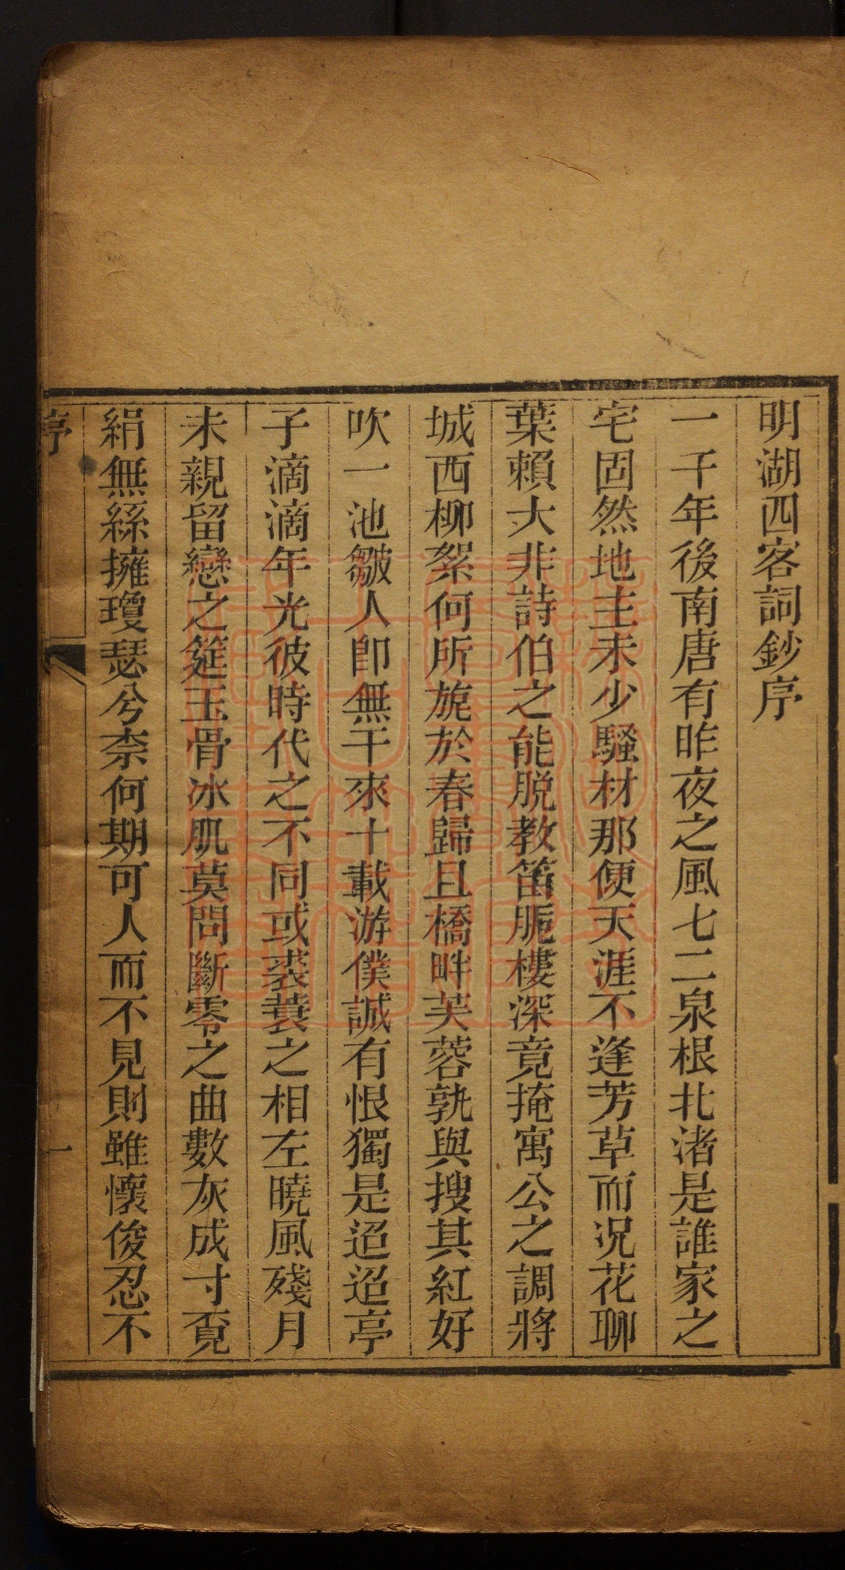 明湖四客詞鈔序
一千年後南唐有昨夜之風七二泉根北渚是誰家之
宅固然地主未少騷材那便天涯不逢芳草而况花聊
葉賴大非詩伯之能脱教笛脆樓深竟掩寓公之調將
城西柳絮何所旎於春歸且橋畔芙蓉孰與搜其紅好
吹一池皺人卽無干來十載游僕誠有恨獨是迢迢亭
子滴滴年光彼時代之不同或裘蓑之相左曉風殘月
未親留戀之筵玉骨冰肌莫問斷零之曲數灰成寸覔
絹無絲擁瓊瑟兮柰何期可人而不見則雖懷俊忍不
序
一